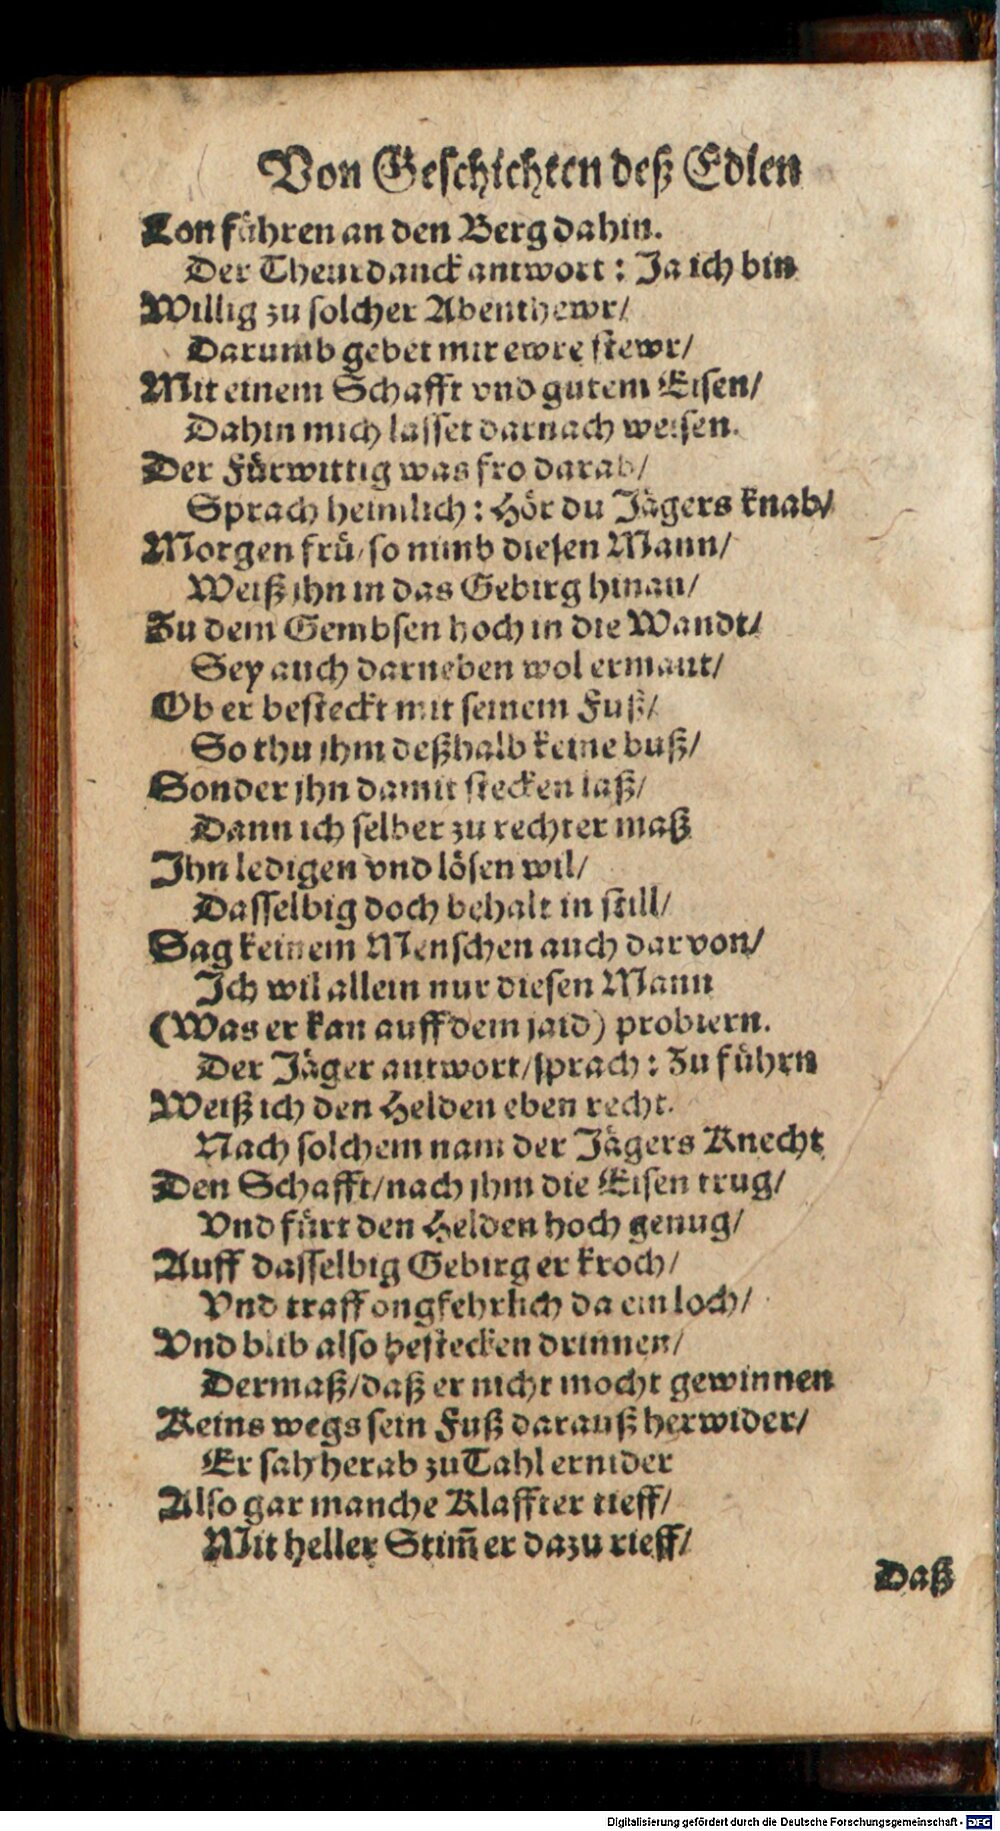 Von Geschichten deß Edlen
Lon führen an den Berg dahin.
Der Theurdanck antwort: Ja ich bin
Willig zu solcher Abenthewr/
Darumb gebet mir ewre stewr/
Mit einem Schafft vnd gutem Eisen/
Dahin mich lasset darnach weisen.
Der Fürwittig was fro darab/
Sprach heimlich: Hör du Jägers knab/
Morgen frü/so nimb diesen Mann/
Weiß jhn in das Gebirg hinan/
Zu dem Gembsen hoch in die Wandt/
Sey auch darneben wol ermant/
Ob er besteckt mit seinem Fuß/
So thu jhm deßhalb keine buß/
Sonder jhn damit stecken laß/
Dann ich selber zu rechter maß
Ihn ledigen vnd lösen wil/
Dasselbig doch behalt in still/
Sag keinem Menschen auch darvon/
Ich wil allein nur diesen Mann
(Was er kan auff dem jaid) probiern.
Der Jäger antwort/sprach: Zu führn
Weiß ich den Helden eben recht.
Nach solchem nam der Jägers Knecht
Den Schafft/nach jhm die Eisen trug/
Vnd fürt den Helden hoch genug/
Auff dasselbig Gebirg er kroch/
Vnd traff ongfehrlich da ein loch/
Vnd blib also bestecken drinnen/
Dermaß/daß er nicht mocht gewinnen
Keins wegs sein Fuß darauß herwider/
Er sah herab zu Tahl ernider
Also gar manche Klaffter tieff/
Mit heller Stim̄ er dazu rieff/
Daß
Digitalisierung gefördert durch die Deutsche Forschungsgemeinschaft - DFG